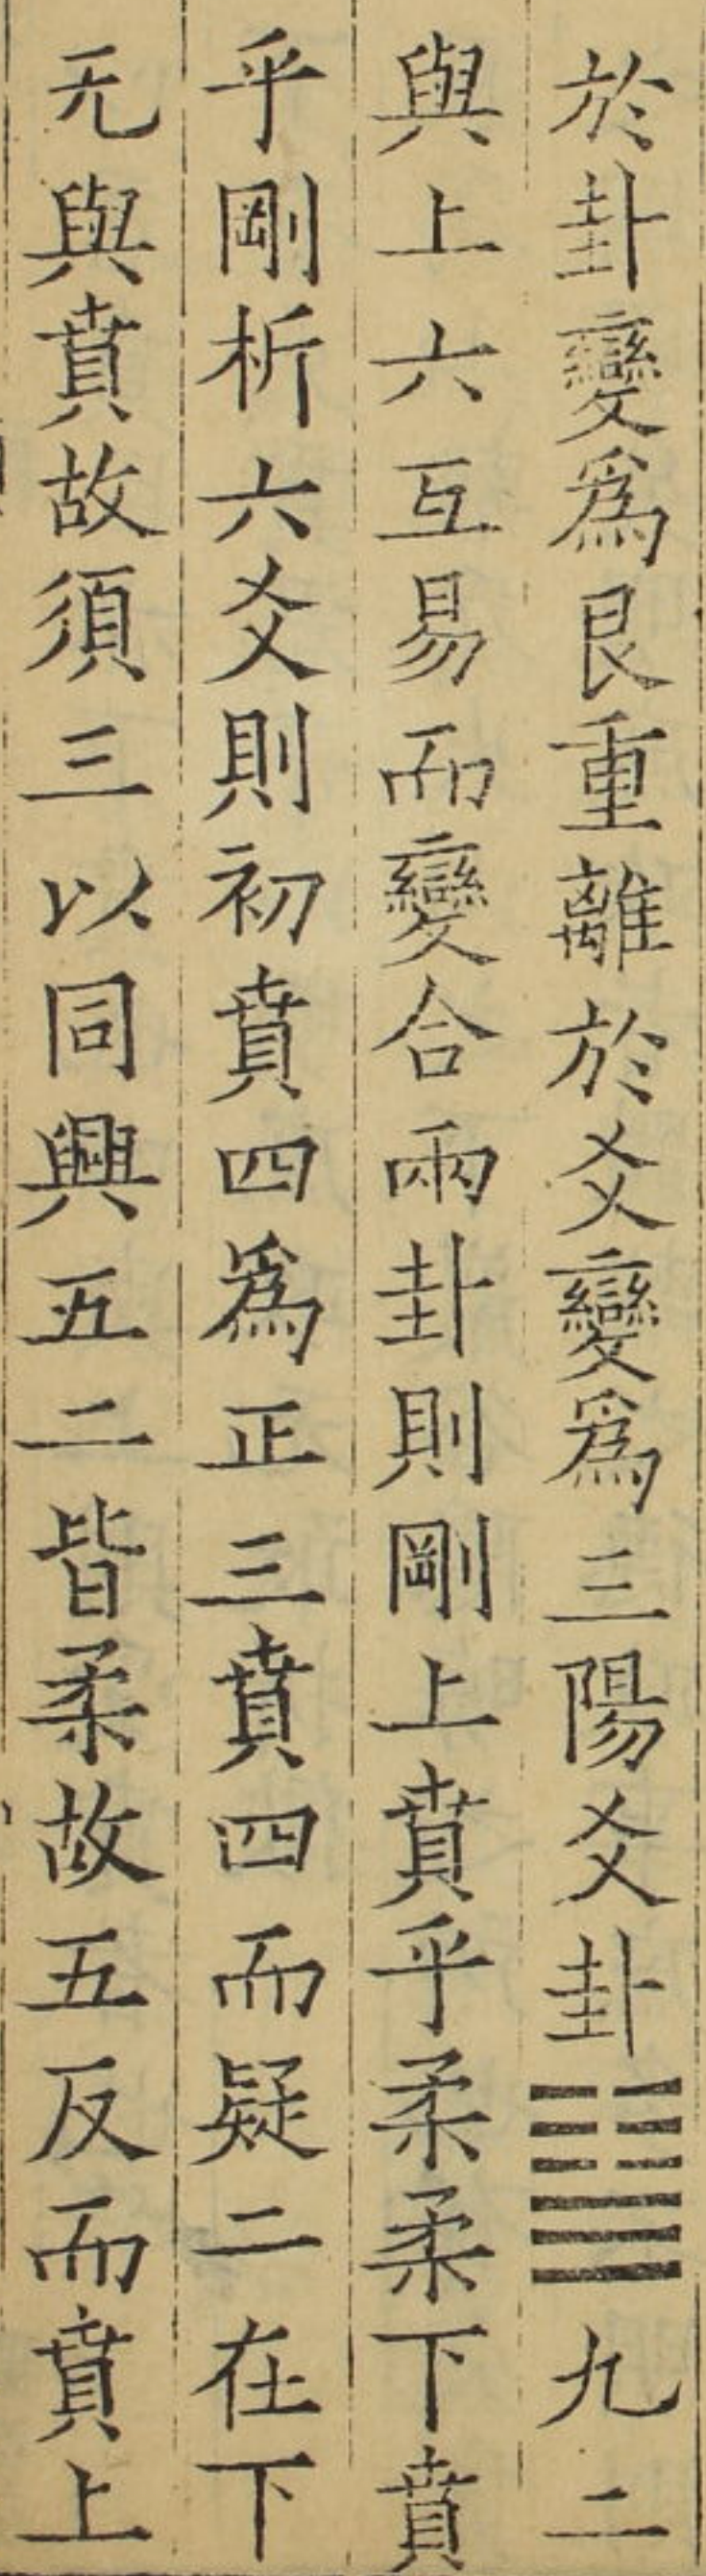 於卦變爲艮重離於爻變爲三陽爻卦䷊九二
與上六互易而變合兩卦則剛上賁乎柔柔下賁
乎剛析六爻則初賁四爲正三賁四而疑二在下
无與賁故須三以同興五二皆柔故五反而賁上